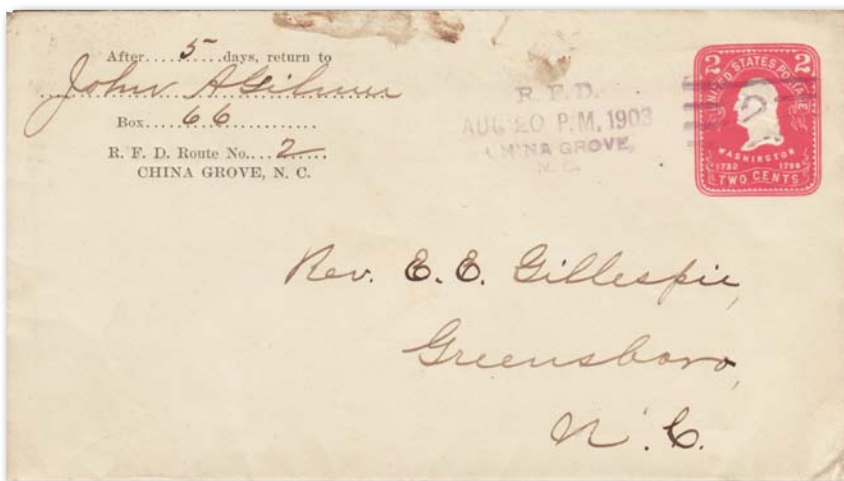 After.....5.....days, return to
John A Gilmer
Box.....66.....
R. F. D. Route No....2.....
CHINA GROVE, N. C.
R. F. D.
AUG 20 P.M. 1903
CHINA GROVE,
N. C.
2 2
UNITED STATES POSTAGE
WASHINGTON
1732 1799
TWO CENTS
2
Rev. E. E. Gillespie,
Greensboro,
N. C.